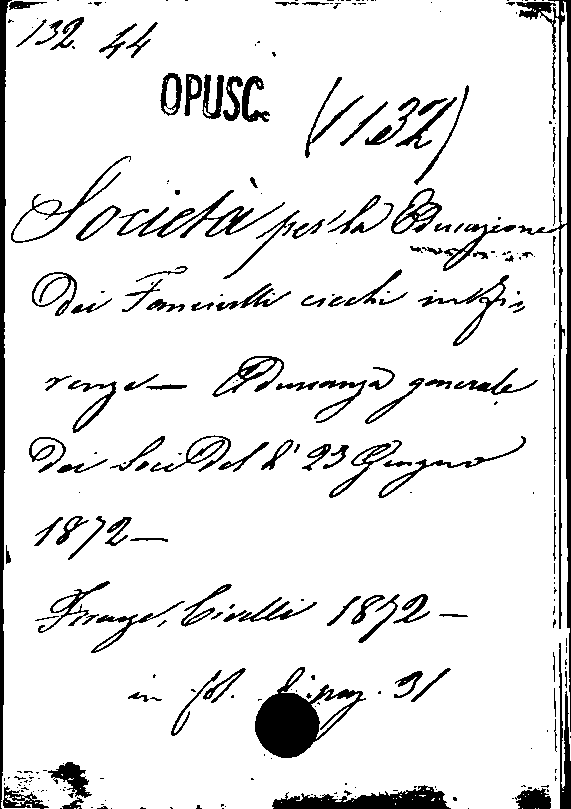 132. 44
OPUSC.
(1132)
Società per la Educazione
dei Fanciulli ciechi in Fi-
renze — Adunanza generale
dei Soci del dì 23 Giugno
1872 —
Firenze, Civelli 1872 —
in fol. di pag. 31